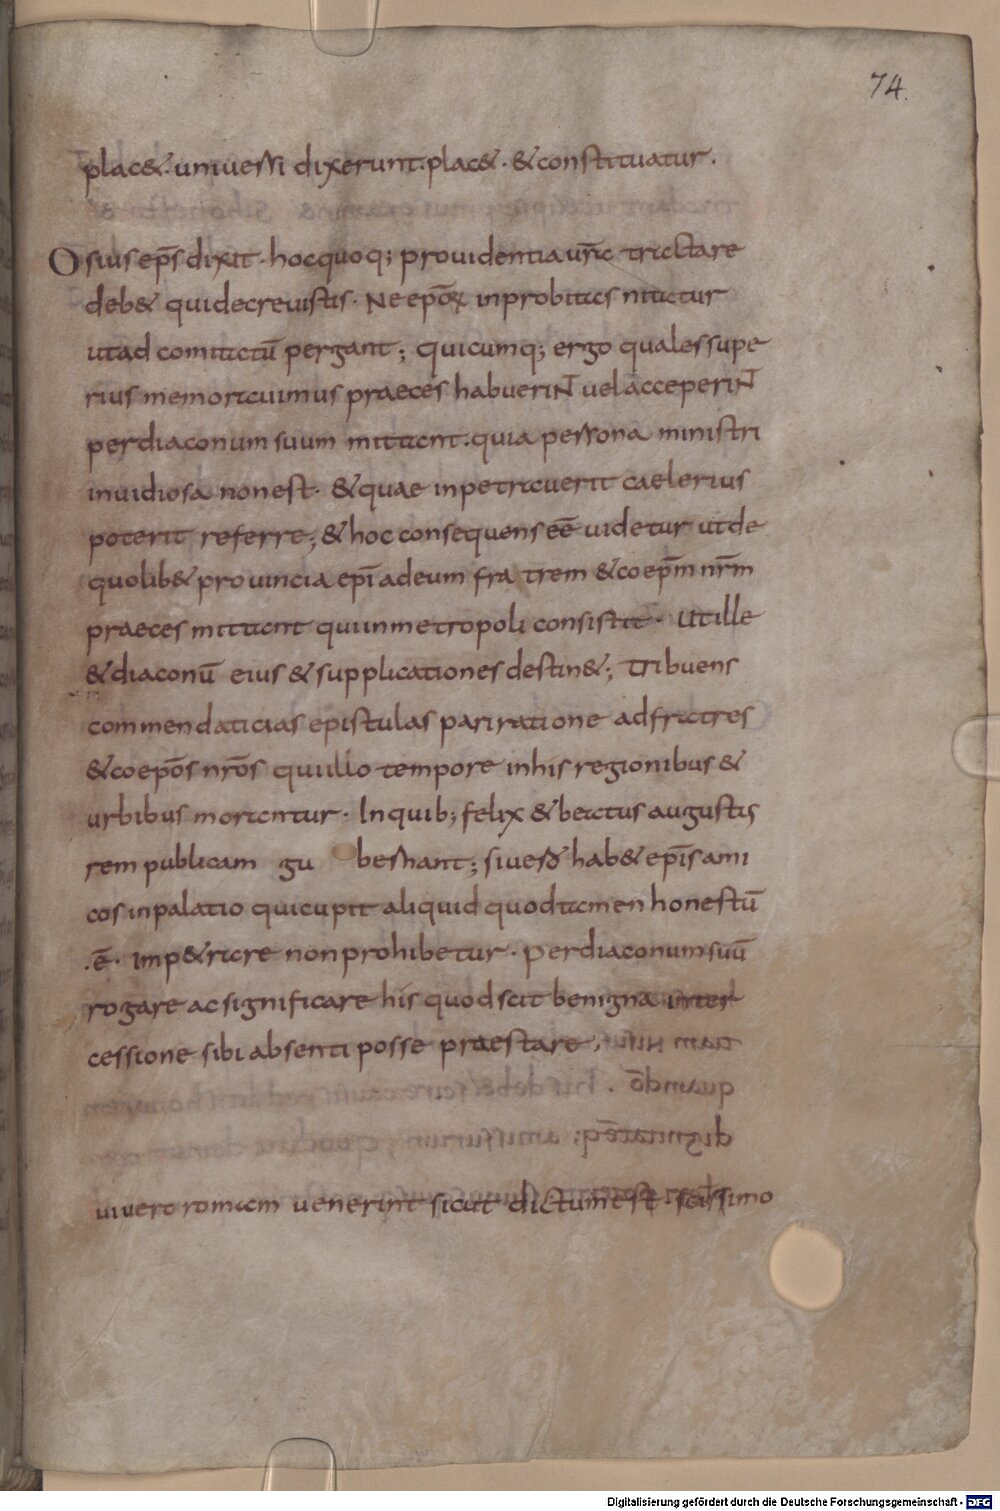 74.
plac&. uniuersi dixerunt. plac&. &constituatur.
Osius ep̄s dixit. hoc quoq; prouidentia ur̄a tractare
deb& qui decreuistis. Ne epōꝝ inprobitas nitatur
ut ad comitatū pergant; quicumq; ergo quales supe
rius memorauimus praeces habuerint uel acceperint
per diaconum suum mittant. quia persona ministri
inuidiosa non est. &quae inpetrauerit caelerius
poterit referre; &hoc consequens eē uidetur ut de
quolib& prouincia ep̄i ad eum fratrem &coep̄m nr̄m
praeces mittant qui in metropoli consistit. Ut ille
&diaconū eius &supplicationes destin&; tribuens
commendaticias epistulas pari ratione ad fratres
&coep̄os nr̄os qui illo tempore in his regionibus &
urbibus morantur. In quib; felix &beatus augustis
rem publicam gu bernant; siue hab& ep̄is ami
cos in palatio qui cupit aliquid quod tamen honestū
.ē. Imp&rare non prohibetur. Per diaconum suū
rogare ac significare his quod scit benigna inter
cessione sibi absenti posse praestare.
ui uero romam uenerint sicut dictum est. scīssimo
Digitalisierung gefördert durch die Deutsche Forschungsgemeinschaft - DFG